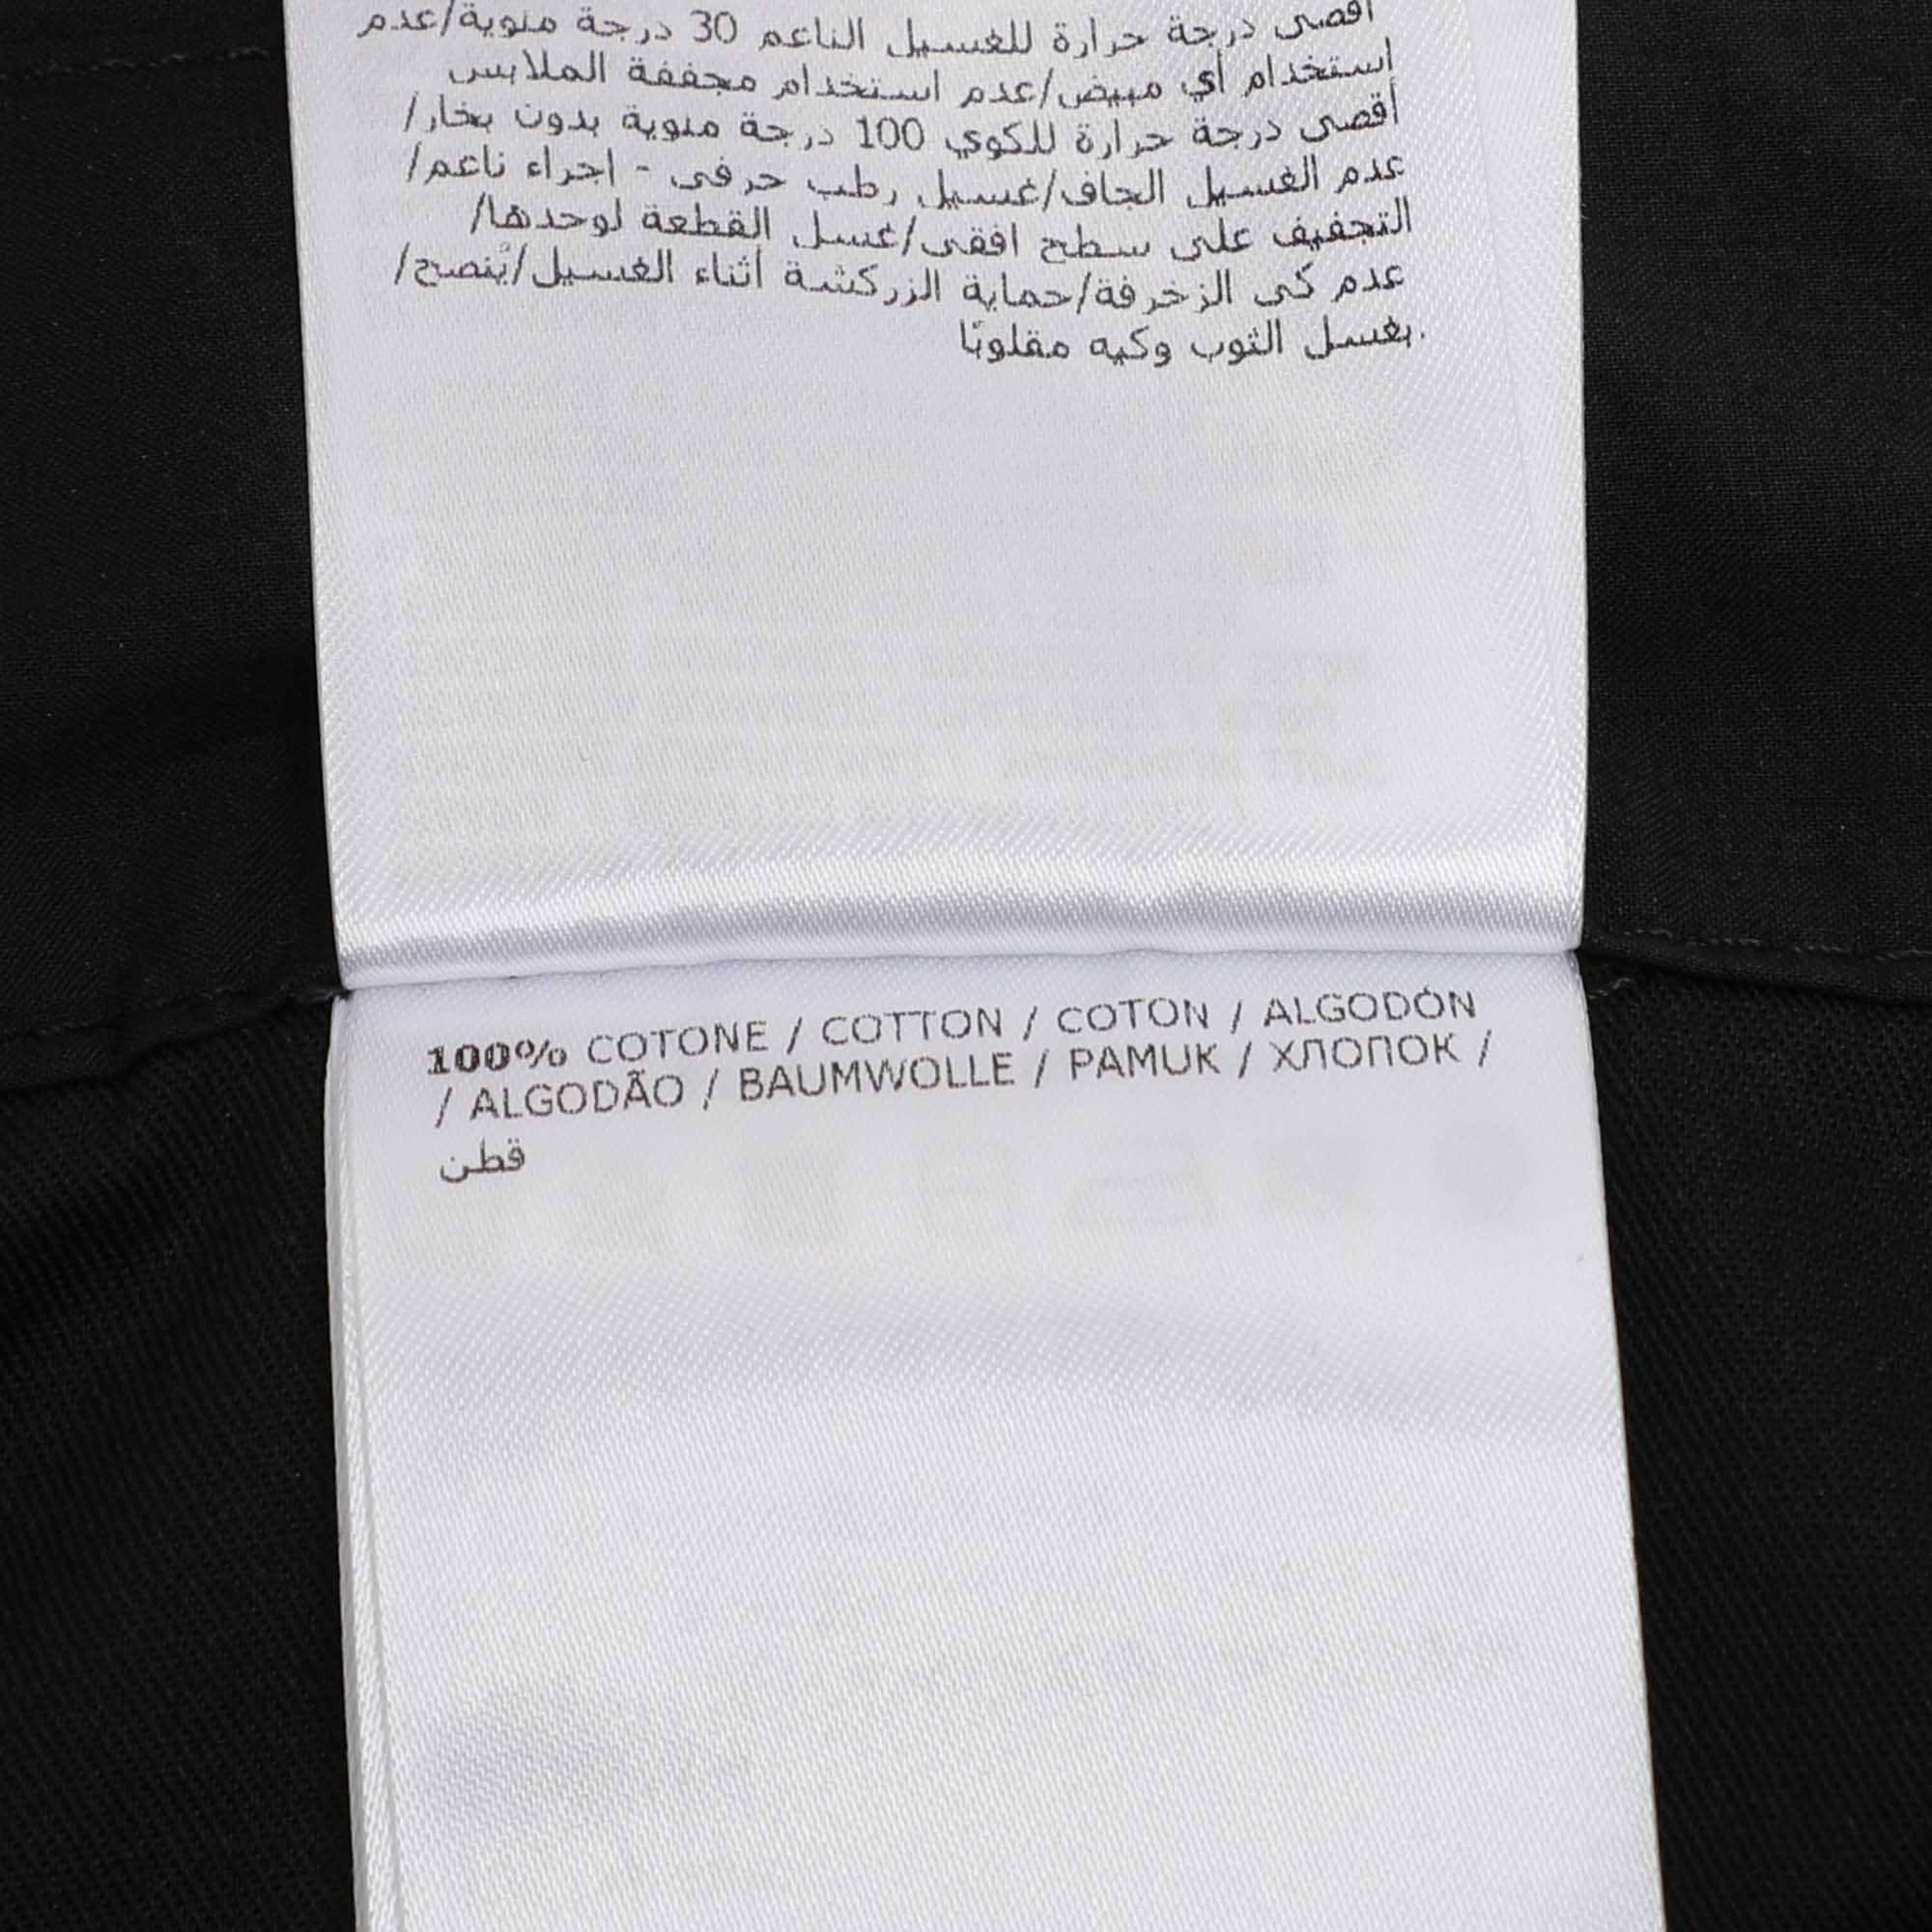 أقصى درجة حرارة للغسيل الناعم 30 درجة مئوية/عدم
استخدام أي مبيض/عدم استخدام مجففة الملابس
أقصى درجة حرارة للكوي 100 درجة مئوية بدون بخار/
عدم الغسيل الجاف/غسيل رطب حرفى - اجراء ناعم/
التجفيف على سطح افقى/غسل القطعة لوحدها/
عدم كى الزخرفة/حماية الزركشة أثناء الغسيل/يُنصح/
.بغسل الثوب وكيه مقلوبًا
100% COTONE / COTTON / COTON / ALGODÓN
/ ALGODÃO / BAUMWOLLE / PAMUK / ХЛОПОК /
قطن